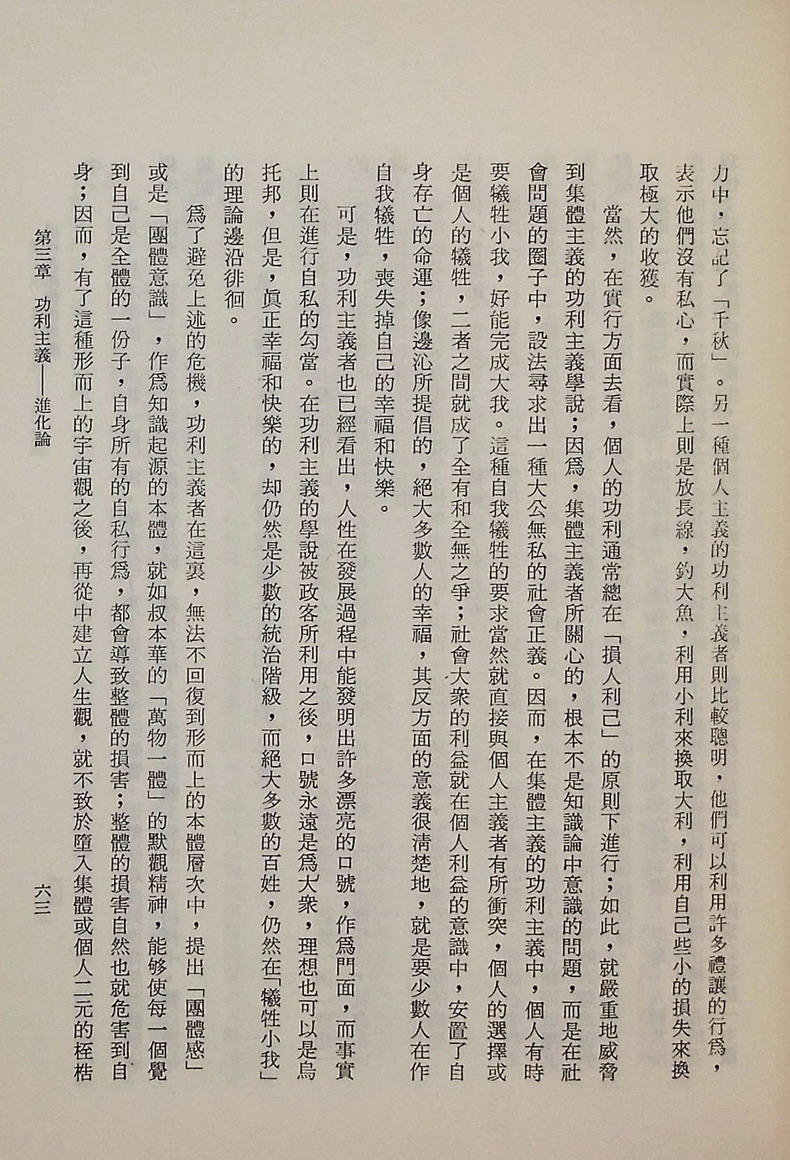 力中，忘記了「千秋」。另一種個人主義的功利主義者則比較聰明，他們可以利用許多禮讓的行爲，
表示他們沒有私心，而實際上則是放長線，釣大魚，利用小利來換取大利，利用自己些小的損失來換
取極大的收獲。
當然，在實行方面去看，個人的功利通常總在「損人利己」的原則下進行；如此，就嚴重地威脅
到集體主義的功利主義學說；因爲，集體主義者所關心的，根本不是知識論中意識的問題，而是在社
會問題的圈子中，設法尋求出一種大公無私的社會正義。因而，在集體主義的功利主義中，個人有時
要犧牲小我，好能完成大我。這種自我犧牲的要求當然就直接與個人主義者有所衝突，個人的選擇或
是個人的犧牲，二者之間就成了全有和全無之爭；社會大衆的利益就在個人利益的意識中，安置了自
身存亡的命運；像邊沁所提倡的，絕大多數人的幸福，其反方面的意義很淸楚地，就是要少數人在作
自我犧牲，喪失掉自己的幸福和快樂。
可是，功利主義者也已經看出，人性在發展過程中能發明出許多漂亮的口號，作爲門面，而事實
上則在進行自私的勾當。在功利主義的學說被政客所利用之後，口號永遠是爲大衆，理想也可以是烏
托邦，但是，眞正幸福和快樂的，却仍然是少數的統治階級，而絕大多數的百姓，仍然在「犧牲小我」
的理論邊沿徘徊。
爲了避免上述的危機，功利主義者在這裏，無法不回復到形而上的本體層次中，提出「團體感」
或是「團體意識」，作爲知識起源的本體，就如叔本華的「萬物一體」的默觀精神，能够使每一個覺
到自己是全體的一份子，自身所有的自私行爲，都會導致整體的損害；整體的損害自然也就危害到自
身；因而，有了這種形而上的宇宙觀之後，再從中建立人生觀，就不致於墮入集體或個人二元的桎梏
第三章　功利主義──進化論
六三